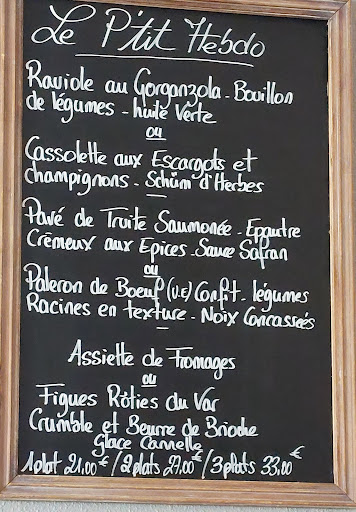 Le P'tit Hebdo
Raviole au Gorganzola - Bouillon
de légumes - huile Verte
ou
Cassolette aux Escargots et
champignons - Schüm d'Herbes
Pavé de Truite Saumonée - Epautre
Crémeux aux Epices - Sauce Safran
ou
Paleron de Boeuf (U.E) Confit - légumes
Racines en texture - Noix Concassées
Assiette de Fromages
ou
Figues Rôties du Var
Crumble et Beurre de Brioche
Glace Cannelle
1 plat 21.00€ / 2 plats 27.00€ / 3 plats 33.00€